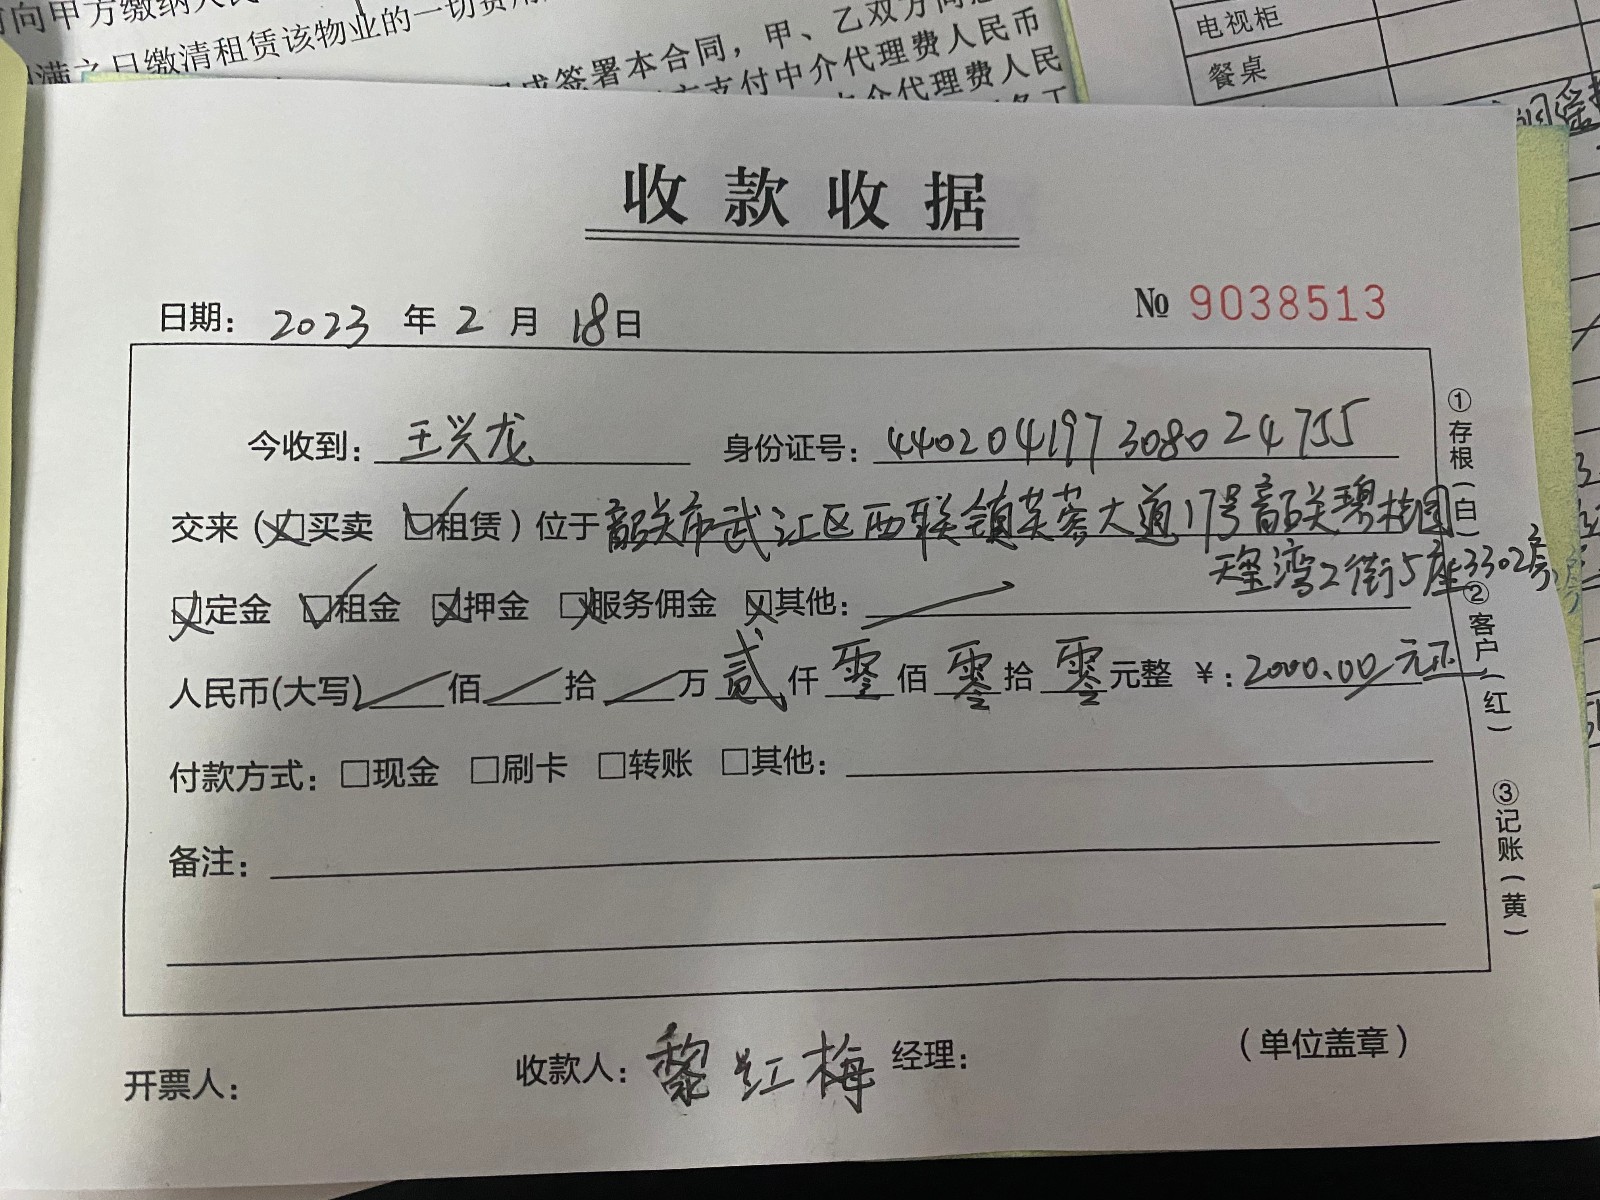 向甲方缴纳人民
满之日缴清租赁该物业的一切费用
成签署本合同，甲、乙双方同意
支付中介代理费人民币
介代理费人民
电视柜
餐桌
收款收据
日期：2023年2月18日
№ 9038513
今收到：王兴龙 身份证号：440204197308024755
交来（☒买卖 ☑租赁）位于韶关市武江区西联镇芙蓉大道17号韶关碧桂园
玺湾2街5座3302房
☒定金 ☑租金 ☒押金 ☒服务佣金 ☒其他：
人民币(大写) 佰 拾 万贰仟零佰零拾零元整 ￥：2000.00元正
付款方式：□现金 □刷卡 □转账 □其他：
备注：
①存根(白)
②客户(红)
③记账(黄)
开票人：
收款人：黎红梅
经理：
（单位盖章）